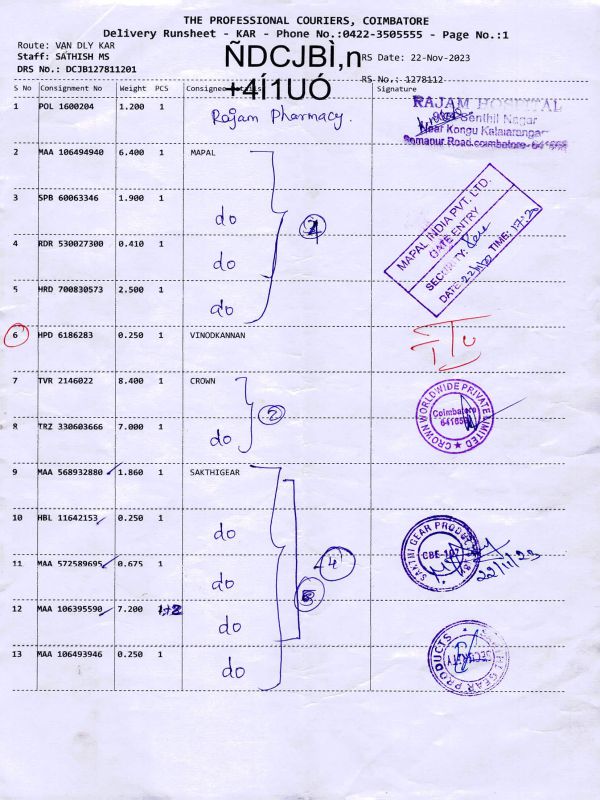 THE PROFESSIONAL COURIERS, COIMBATORE
Delivery Runsheet - KAR - Phone No.:0422-3505555 - Page No.:1
Route: VAN DLY KAR
Staff: SATHISH MS
RS Date: 22-Nov-2023
DRS No.: DCJB127811201
RS No.: 1278112
ÑDCJBÌ,n
+4Í1UÓ
S No Consignment No Weight PCS Consignee Details Signature
1 POL 1600204 1.200 1 Rajam Pharmacy.
RAJAM HOSPITAL
Senthil Nagar
Near Kongu Kalaiarangam
Somanur Road, coimbatore- 641668
2 MAA 106494940 6.400 1 MAPAL
3 SPB 60063346 1.900 1 do
4 RDR 530027300 0.410 1 do
5 HRD 700830573 2.500 1 do
4
MAPAL INDIA PVT. LTD.
GATE ENTRY
SECURITY:
DATE: TIME: 17:20
6 HPD 6186283 0.250 1 VINODKANNAN
7 TVR 2146022 8.400 1 CROWN
8 TRZ 330603666 7.000 1 do
2
CROWN WORLDWIDE PRIVATE LIMITED
Coimbatore
9 MAA 568932880 1.860 1 SAKTHIGEAR
10 HBL 11642153 0.250 1 do
11 MAA 572589695 0.675 1 do
12 MAA 106395590 7.200 1+2 do
13 MAA 106493946 0.250 1 do
4
5
SAKTHI GEAR PRODUCTS
CBE-107
22/11/23
SAKTHI GEAR PRODUCTS
SECURITY